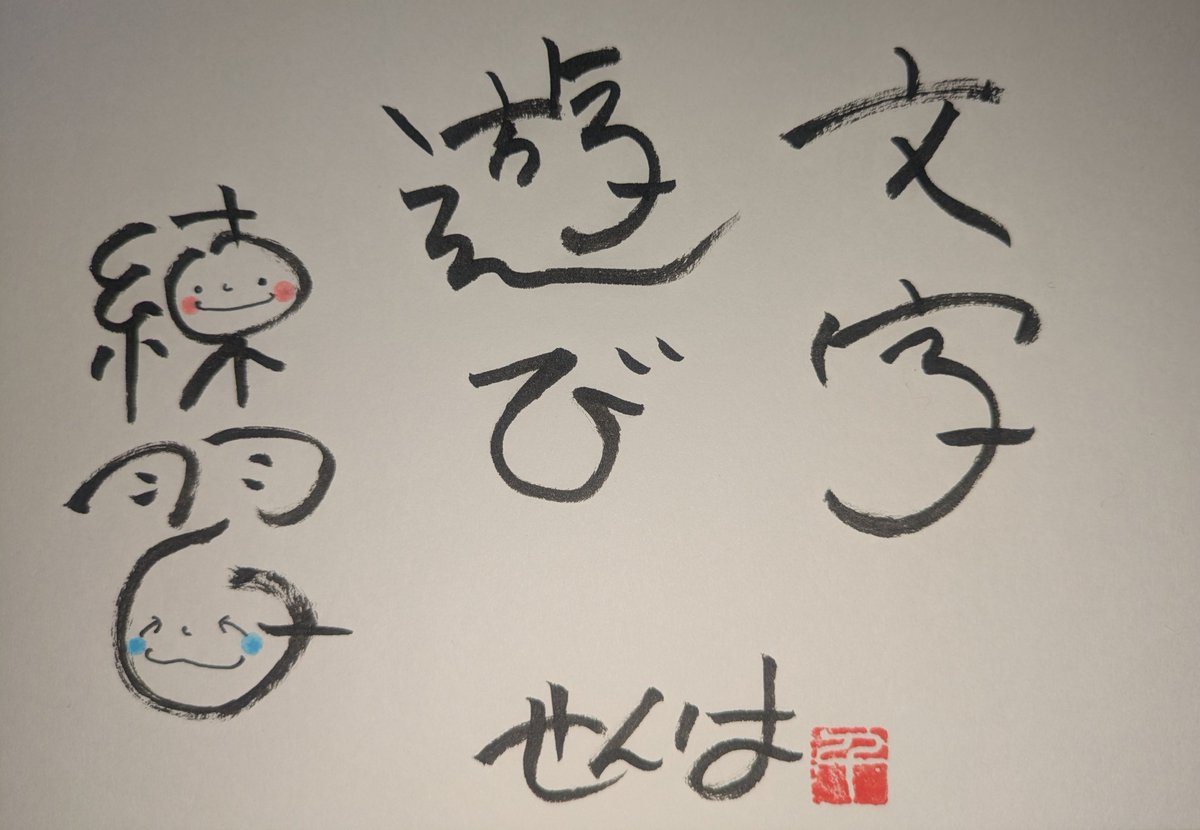 文字
遊び
練習
せんは
千